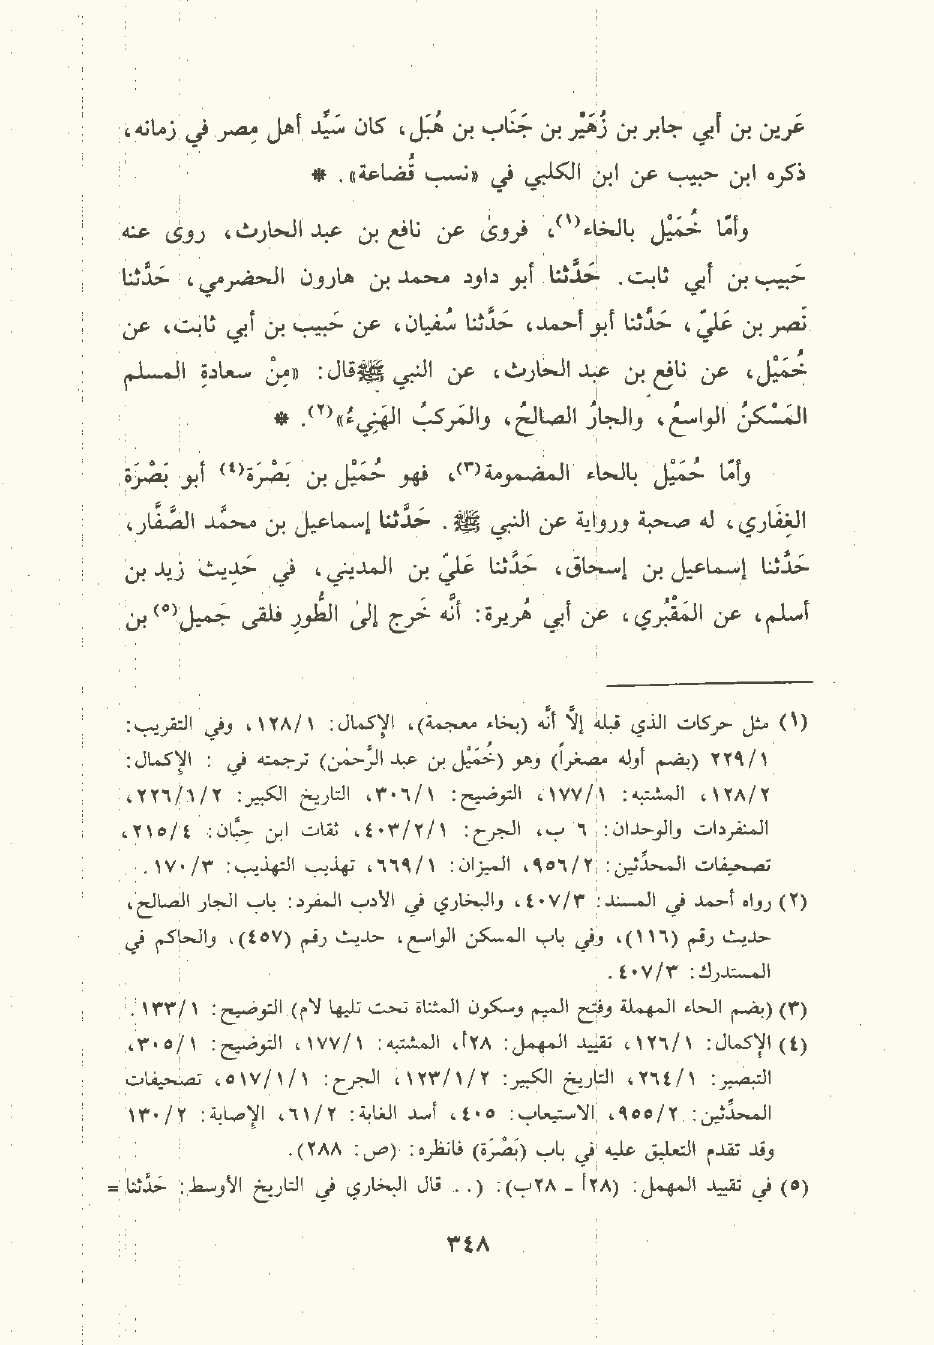 عَرين بن أبي جابر بن زُهَيْر بن جَنَاب بن هُبَل، كان سَيِّد أهل مِصر في زمانه،
ذكره ابن حبيب عن ابن الكلبي في «نسب قُضاعة». *
وأمّا خُمَيْل بالخاء(١)، فروىٰ عن نافع بن عبد الحارث، روى عنه
حَبيب بن أبي ثابت. حَدَّثنا أبو داود محمد بن هارون الحضرمي، حَدَّثنا
نَصر بن عَليّ، حَدَّثنا أبو أحمد، حَدَّثنا سُفيان، عن حَبيب بن أبي ثابت، عن
خُمَيْل، عن نافع بن عبد الحارث، عن النبي ﷺ قال: «مِنْ سعادةِ المسلم
المَسْكنُ الواسعُ، والجارُ الصالحُ، والمَركبُ الهَنِيءُ»(٢). *
وأمّا حُمَيْل بالحاء المضمومة(٣)، فهو حُمَيْل بن بَصْرَة(٤) أبو بَصْرَة
الغِفَاري، له صحبة ورواية عن النبي ﷺ. حَدَّثنا إسماعيل بن محمَّد الصَّفَّار،
حَدَّثنا إسماعيل بن إسحاق، حَدَّثنا عَليّ بن المديني، في حَدِيث زيد بن
أسلم، عن المَقْبُري، عن أبي هُريرة: أنَّه خَرج إلىٰ الطُّورِ فلقى جَميل(٥) بن
(١) مثل حركات الذي قبله إلاَّ أنَّه (بخاء معجمة)، الإكمال: ١٢٨/١، وفي التقريب:
٢٢٩/١ (بضم أوله مصغراً) وهو (خُمَيْل بن عبد الرَّحمٰن) ترجمته في : الإكمال:
١٢٨/٢، المشتبه: ١٧٧/١، التوضيح: ٣٠٦/١، التاريخ الكبير: ٢٢٦/١/٢،
المنفردات والوحدان: ٦ ب، الجرح: ٤٠٣/٢/١، ثقات ابن حِبَّان: ٢١٥/٤،
تصحيفات المحدِّثين: ٩٥٦/٢، الميزان: ٦٦٩/١، تهذيب التهذيب: ١٧٠/٣.
(٢) رواه أحمد في المسند: ٤٠٧/٣، والبخاري في الأدب المفرد: باب الجار الصالح،
حديث رقم (١١٦)، وفي باب المسكن الواسع، حديث رقم (٤٥٧)، والحاكم في
المستدرك: ٤٠٧/٣.
(٣) (بضم الحاء المهملة وفتح الميم وسكون المثناة تحت تليها لام) التوضيح: ١٣٣/١.
(٤) الإكمال: ١٢٦/١، تقييد المهمل: ٢٨أ، المشتبه: ١٧٧/١، التوضيح: ٣٠٥/١،
التبصير: ٢٦٤/١، التاريخ الكبير: ١٢٣/١/٢، الجرح: ٥١٧/١/١، تصحيفات
المحدِّثين: ٩٥٥/٢، الاستيعاب: ٤٠٥، أسد الغابة: ٦١/٢، الإصابة: ١٣٠/٢
وقد تقدم التعليق عليه في باب (بَصْرَة) فانظره: (ص: ٢٨٨).
(٥) في تقييد المهمل: (٢٨أ - ٢٨ب): (. . قال البخاري في التاريخ الأوسط: حَدَّثنا =
٣٤٨